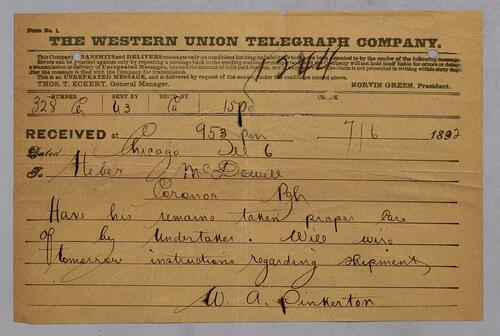 Form No. 1.
THE WESTERN UNION TELEGRAPH COMPANY.
This Company TRANSMITS and DELIVERS messages only on conditions limiting its liability, which have been assented to by the sender of the following message.
Errors can be guarded against only by repeating a message back to the sending station for comparison, and the Company will not hold itself liable for errors or delays
in transmission or delivery of Unrepeated Messages, beyond the amount of tolls paid thereon, nor in any case where the claim is not presented in writing within sixty days
after the message is filed with the Company for transmission.
This is an UNREPEATED MESSAGE, and is delivered by request of the sender, under the conditions named above.
THOS. T. ECKERT, General Manager. NORVIN GREEN, President.
NUMBER SENT BY REC'D BY CHECK
328 Ca 43 Ca 15pd
RECEIVED at 953 pm 7/6 1892
Dated Chicago Ill 6
To Heber McDowell
Coronor Pgh
Have his remains taken proper care
of by undertaker. Will wire
tomorrow instructions regarding shipment
W. A. Pinkerton